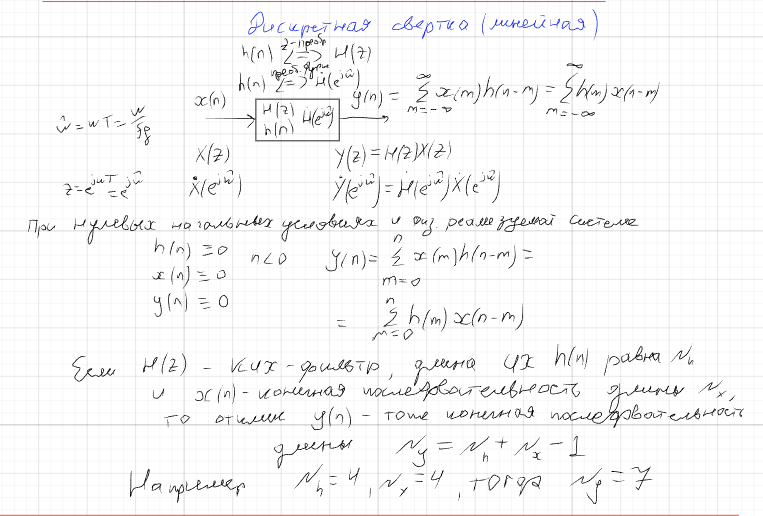 Дискретная свертка (линейная)
h(n) <=> z-преобр. H(z)
h(n) <=> преоб. Фурье Ḣ(e^{jŵ})
x(n) H(z) h(n) Ḣ(e^{jŵ}) y(n) = ∑_{m=-∞}^{∞} x(m)h(n-m) = ∑_{m=-∞}^{∞} h(m) x(n-m)
ŵ = wT = w/fg
X(z) Y(z) = H(z)X(z)
z = e^{jwT} = e^{jŵ} Ẋ(e^{jŵ}) Ẏ(e^{jŵ}) = Ḣ(e^{jŵ}) Ẋ(e^{jŵ})
При нулевых начальных условиях и физ. реализуемой системе
h(n) ≡ 0
x(n) ≡ 0 n<0 y(n) = ∑_{m=0}^{n} x(m)h(n-m) =
y(n) ≡ 0
= ∑_{m=0}^{n} h(m) x(n-m)
Если H(z) - КИХ-фильтр, длина ИХ h(n) равна N_h
и x(n) - конечная последовательность длины N_x,
то отклик y(n) - тоже конечная последовательность
длины N_y = N_h + N_x - 1
Например N_h = 4, N_x = 4, тогда N_y = 7